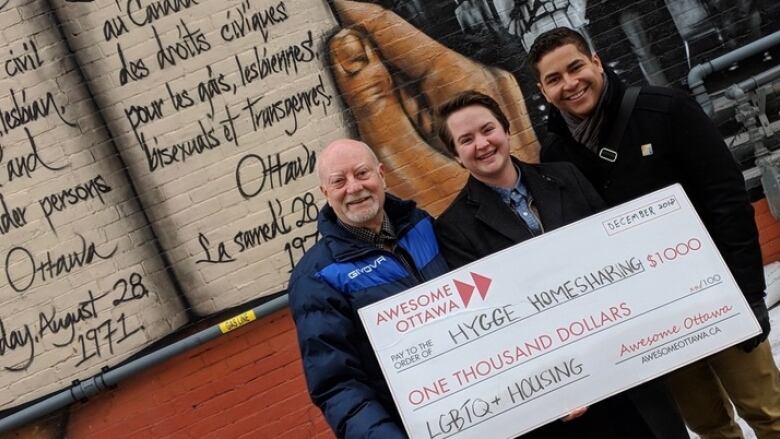 civil
lesbian,
and
der persons
Ottawa
day, August 28,
1971
au Canada
des droits civiques
pour les gais, lesbiennes,
bisexuels et transgenres,
Ottawa
Le samedi 28
197
GASLINE
GIVOVA
AWESOME
OTTAWA
DECEMBER 2018
PAY TO THE
ORDER OF
HYGGE HOMESHARING
$1000
xx/100
ONE THOUSAND DOLLARS
LGBTQ+ HOUSING
Awesome Ottawa
AWESOMEOTTAWA.CA